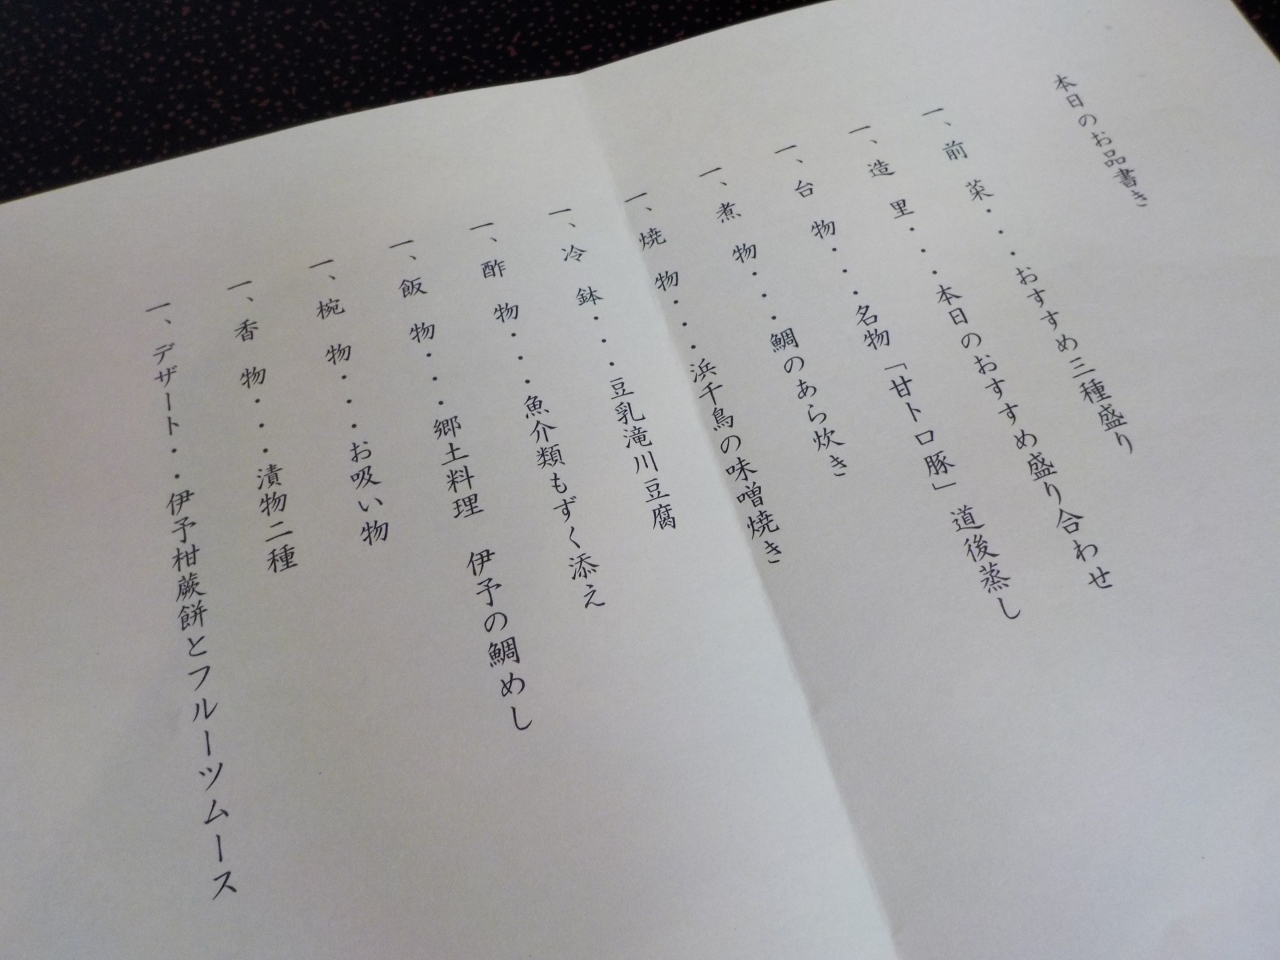 本日のお品書き
一、前　菜・・・おすすめ三種盛り
一、造　里・・・本日のおすすめ盛り合わせ
一、台　物・・・名物「甘トロ豚」道後蒸し
一、煮　物・・・鯛のあら炊き
一、焼　物・・・浜千鳥の味噌焼き
一、冷　鉢・・・豆乳滝川豆腐
一、酢　物・・・魚介類もずく添え
一、飯　物・・・郷土料理　伊予の鯛めし
一、椀　物・・・お吸い物
一、香　物・・・漬物二種
一、デザート・・伊予柑蕨餅とフルーツムース